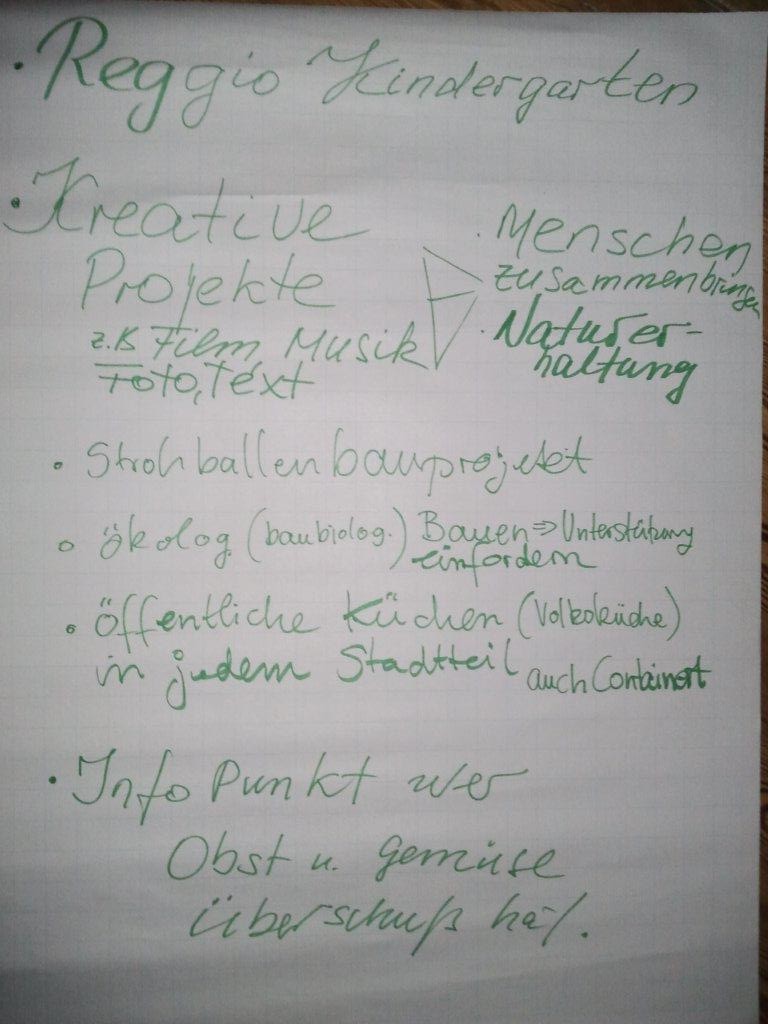 · Reggio Kindergarten
· Kreative
Projekte
z.B Film, Musik
Foto, Text
· Menschen
zusammenbringen
· Naturer-
haltung
· Strohballenbauprojekt
· ökolog. (baubiolog.) Bauen ⇒ Unterstützung
einfordern
· Öffentliche Küchen (Volksküche)
in jedem Stadtteil auch Containert
· Info Punkt wer
Obst u. Gemüse
Überschuß hat.